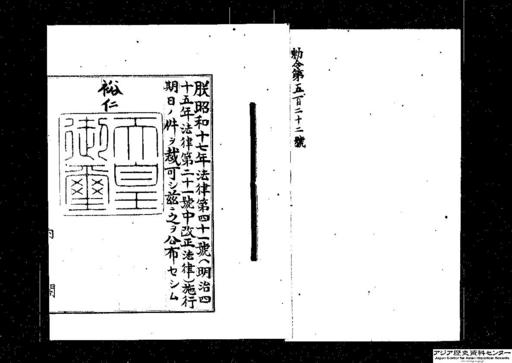 勅令第五百二十二號
朕昭和十七年法律第四十一號(明治四
十五年法律第二十一號中改正法律)施行
期日ノ件ヲ裁可シ茲ニ之ヲ公布セシム
裕仁
天皇御璽
内閣
アジア歴史資料センター
Japan Center for Asian Historical Records